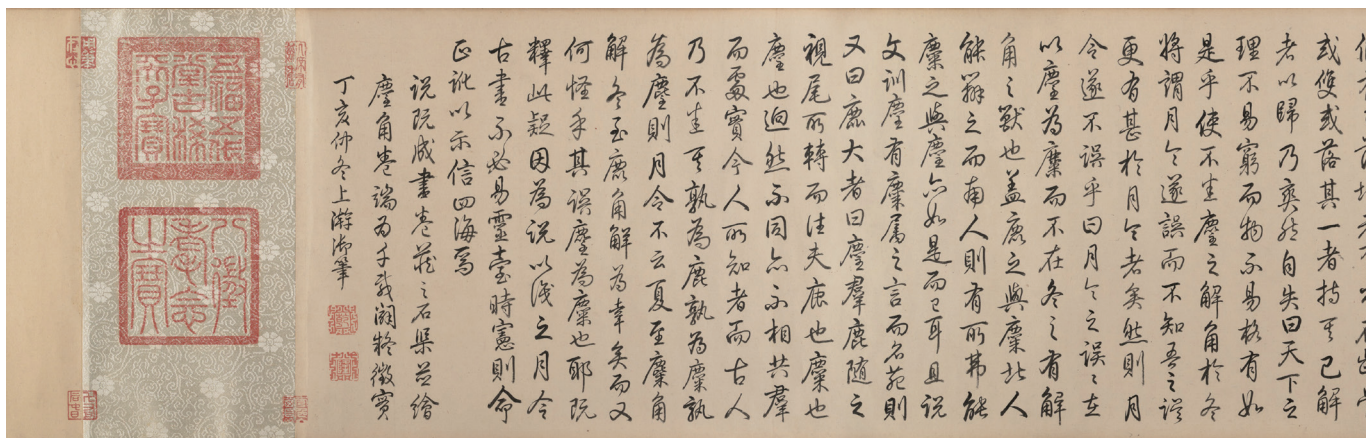 或雙或落其一者持其已解
者以歸乃爽然自失曰天下之
理不易窮而物不易格有如
是乎使不悉麈之解角於冬
將謂月令遂誤而不知吾之誤
更有甚於月令者矣然則月
令遂不誤乎曰月令之誤誤在
以麈為麋而不在冬之有解
角之獸也蓋鹿之與麋北人
能辨之而南人則有所弗能
麋之與麈亦如是而已耳且說
文訓麈有麋屬之言而名苑則
又曰鹿大者曰麈羣鹿隨之
視尾所轉而往夫鹿也麋也
麈也迥然不同亦不相共羣
而處實今人所知者而古人
乃不悉其孰為鹿孰為麋孰
為麈則月令不云夏至麋角
解冬至鹿角解為幸矣而又
何怪乎其誤麈為麋也耶既
釋此疑因為說以識之月令
古書不必易靈臺時憲則命
正訛以示信四海焉
說既成書卷藏之石渠並繪
麈角卷端為千載闢疑徵實
丁亥仲冬上澣御筆
五福五代
堂古稀
天子寶
八徵
耄念
之寶